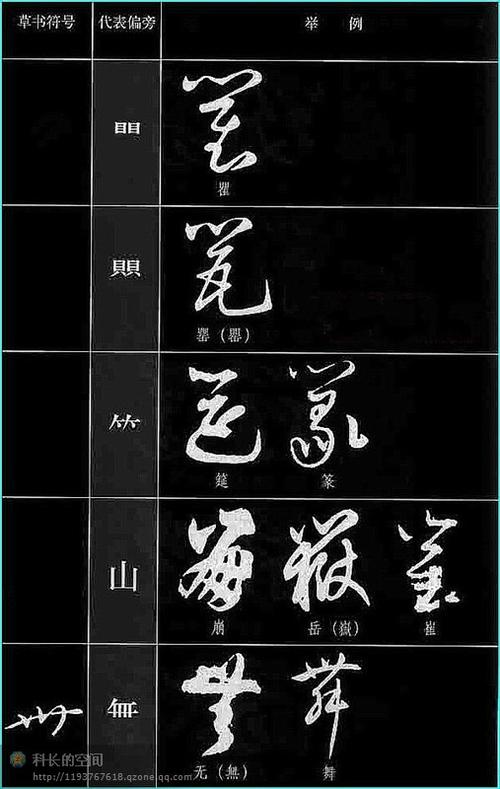 草书符号 代表偏旁 举例
瞿
罂（罌）
竹
筵 篆
山
崩 岳（嶽） 崔
無
无（無） 舞
科长的空间
http://1193767618.qzone.qq.com